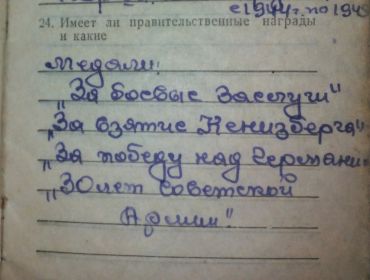 с 1944г. по 194
24. Имеет ли правительственные награды
и какие
Медали:
„За боевые заслуги"
„За взятие Кенизберга"
„За победу над Германи
„30 лет советской
Армии"